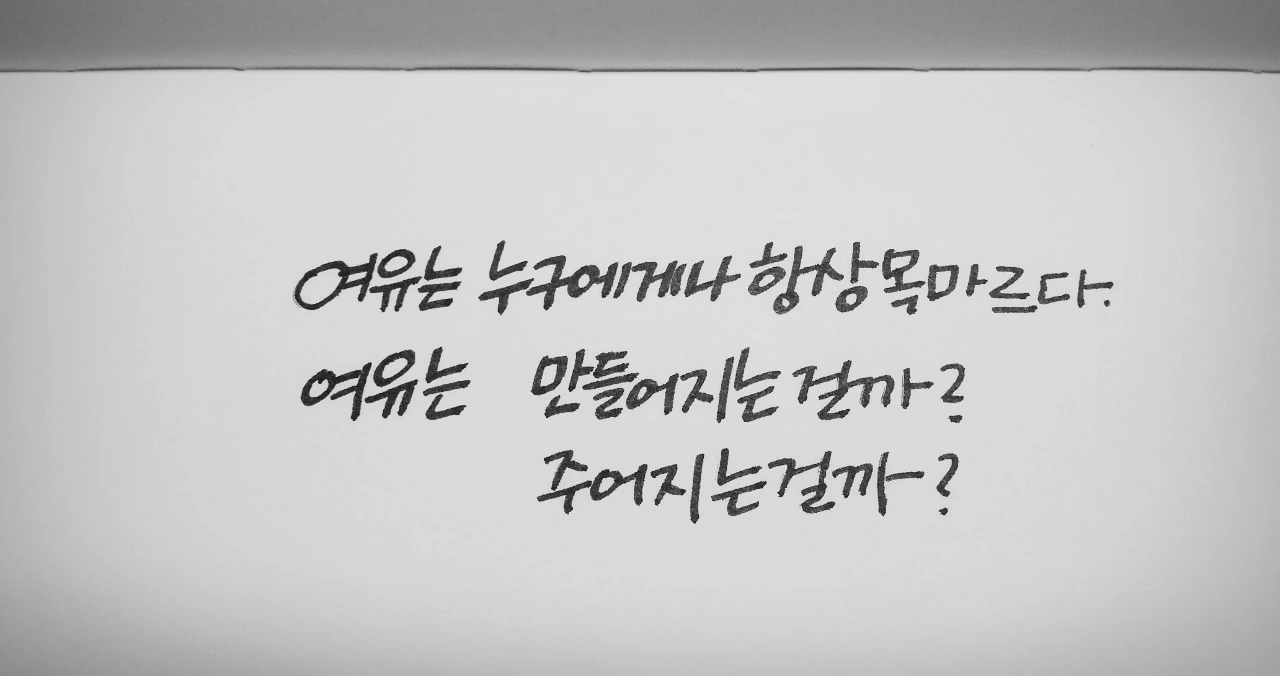 여유는 누구에게나 항상 목마르다.
여유는 만들어지는 걸까?
주어지는 걸까?